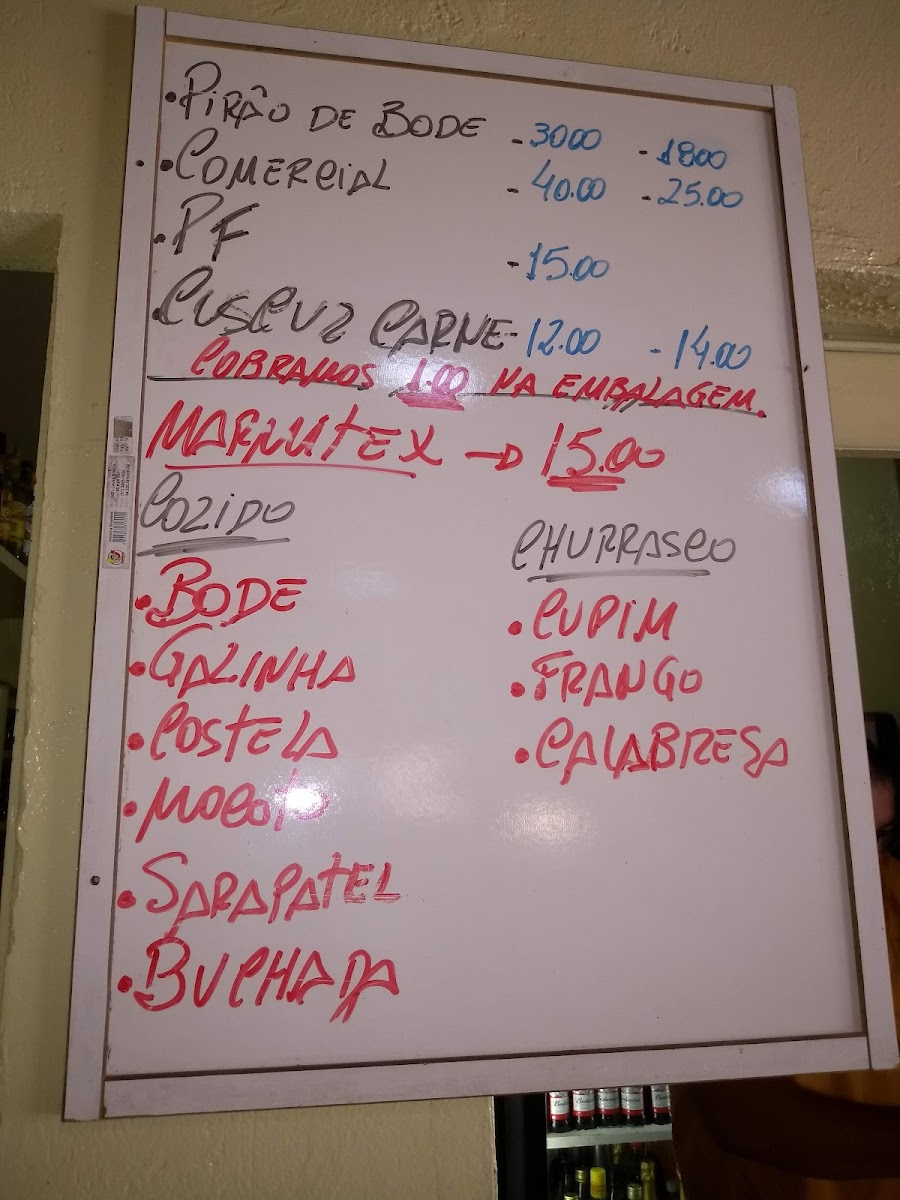 • PIRÃO DE BODE - 3000 - 1800
• COMERCIAL - 40.00 - 25.00
• PF - 15.00
• CUSCUZ CARNE - 12.00 - 14.00
COBRAMOS 1.00 NA EMBALAGEM.
MARMITEX → 15.00
COZIDO
• BODE
• GALINHA
• COSTELA
• MOCOTO
• SARAPATEL
• BUCHADA
CHURRASCO
• CUPIM
• FRANGO
• CALABRESA